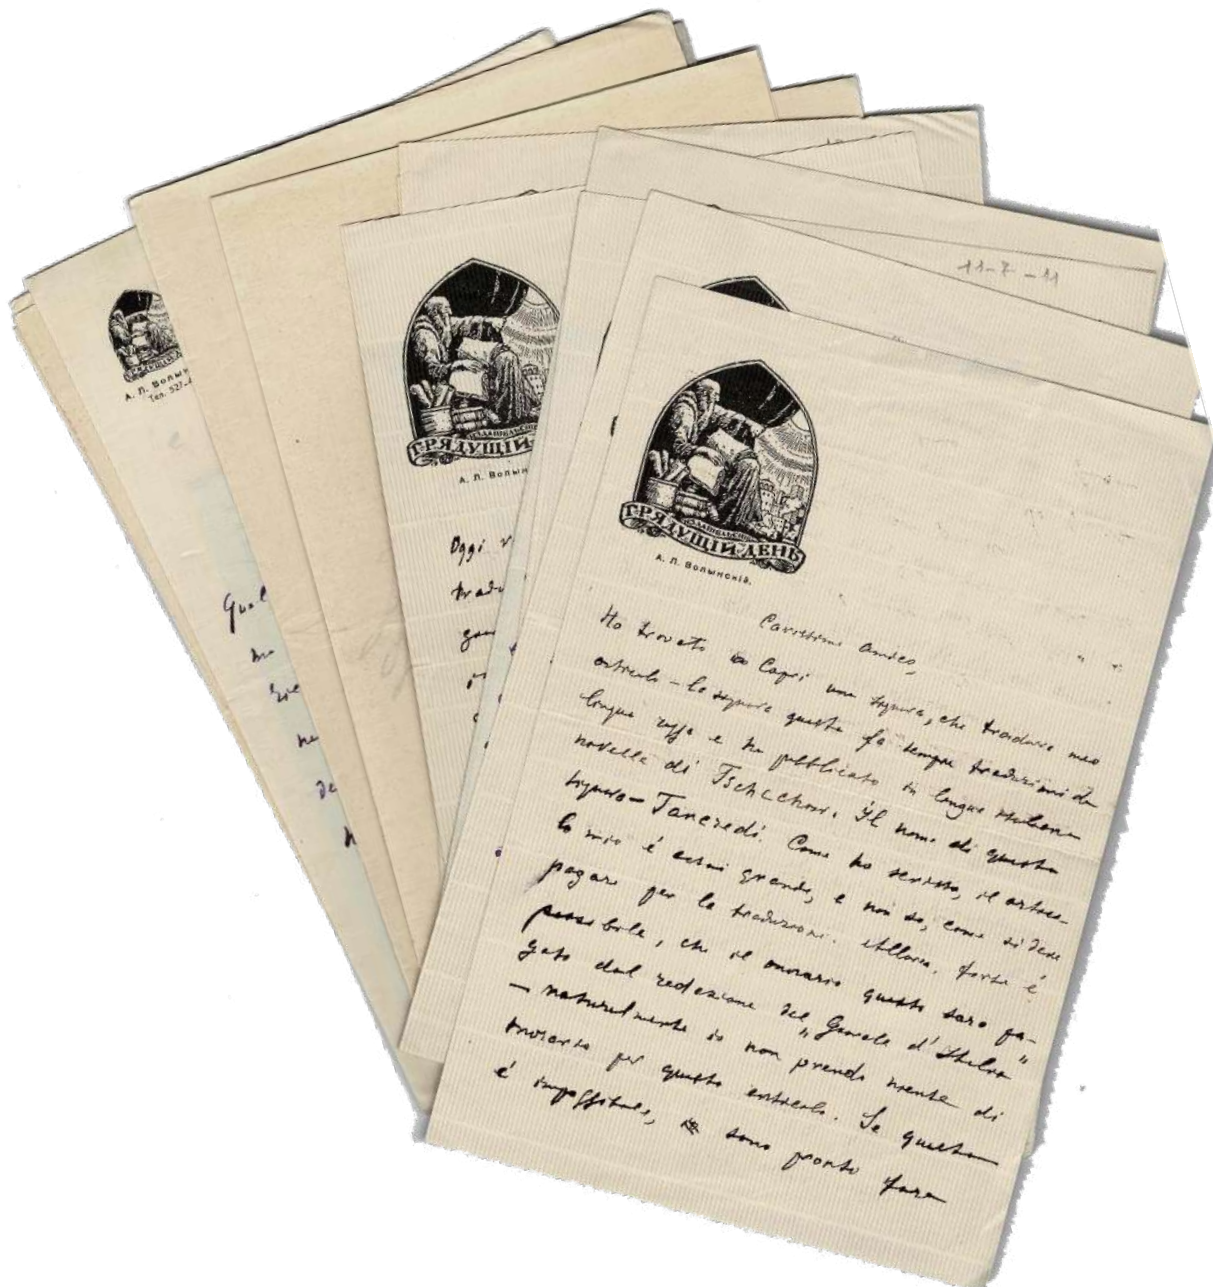 11-7-11
А. Л. Волын
Тел. 527-
Qual
ne
de
ИЗДАТЕЛЬСТВО
ГРЯДУЩІЙ
А. Л. Волын
Oggi
tradu
ИЗДАТЕЛЬСТВО
ГРЯДУЩІЙ ДЕНЬ
А. Л. Волынскій.
Carissimo amico,
Ho trovato in Capri una signora, che tradurre meo
articolo – la signora questa fa sempre traduzioni da
lingua russa e ha pubblicato in lingua italiana
novelle di Tschechow. Il nome di questa
signora – Tancredi. Come ho scritto, il artico-
lo mio é assai grande, e non so, come si deve
pagare per la traduzione. Allora, forse é
possibile, che il onorario questo sara pa-
gato dal redazione del "Giornale d'Italia"
– naturalmente io non prendo niente di
onorario per questo articolo. Se questo
é impossibile, sono pronto fare